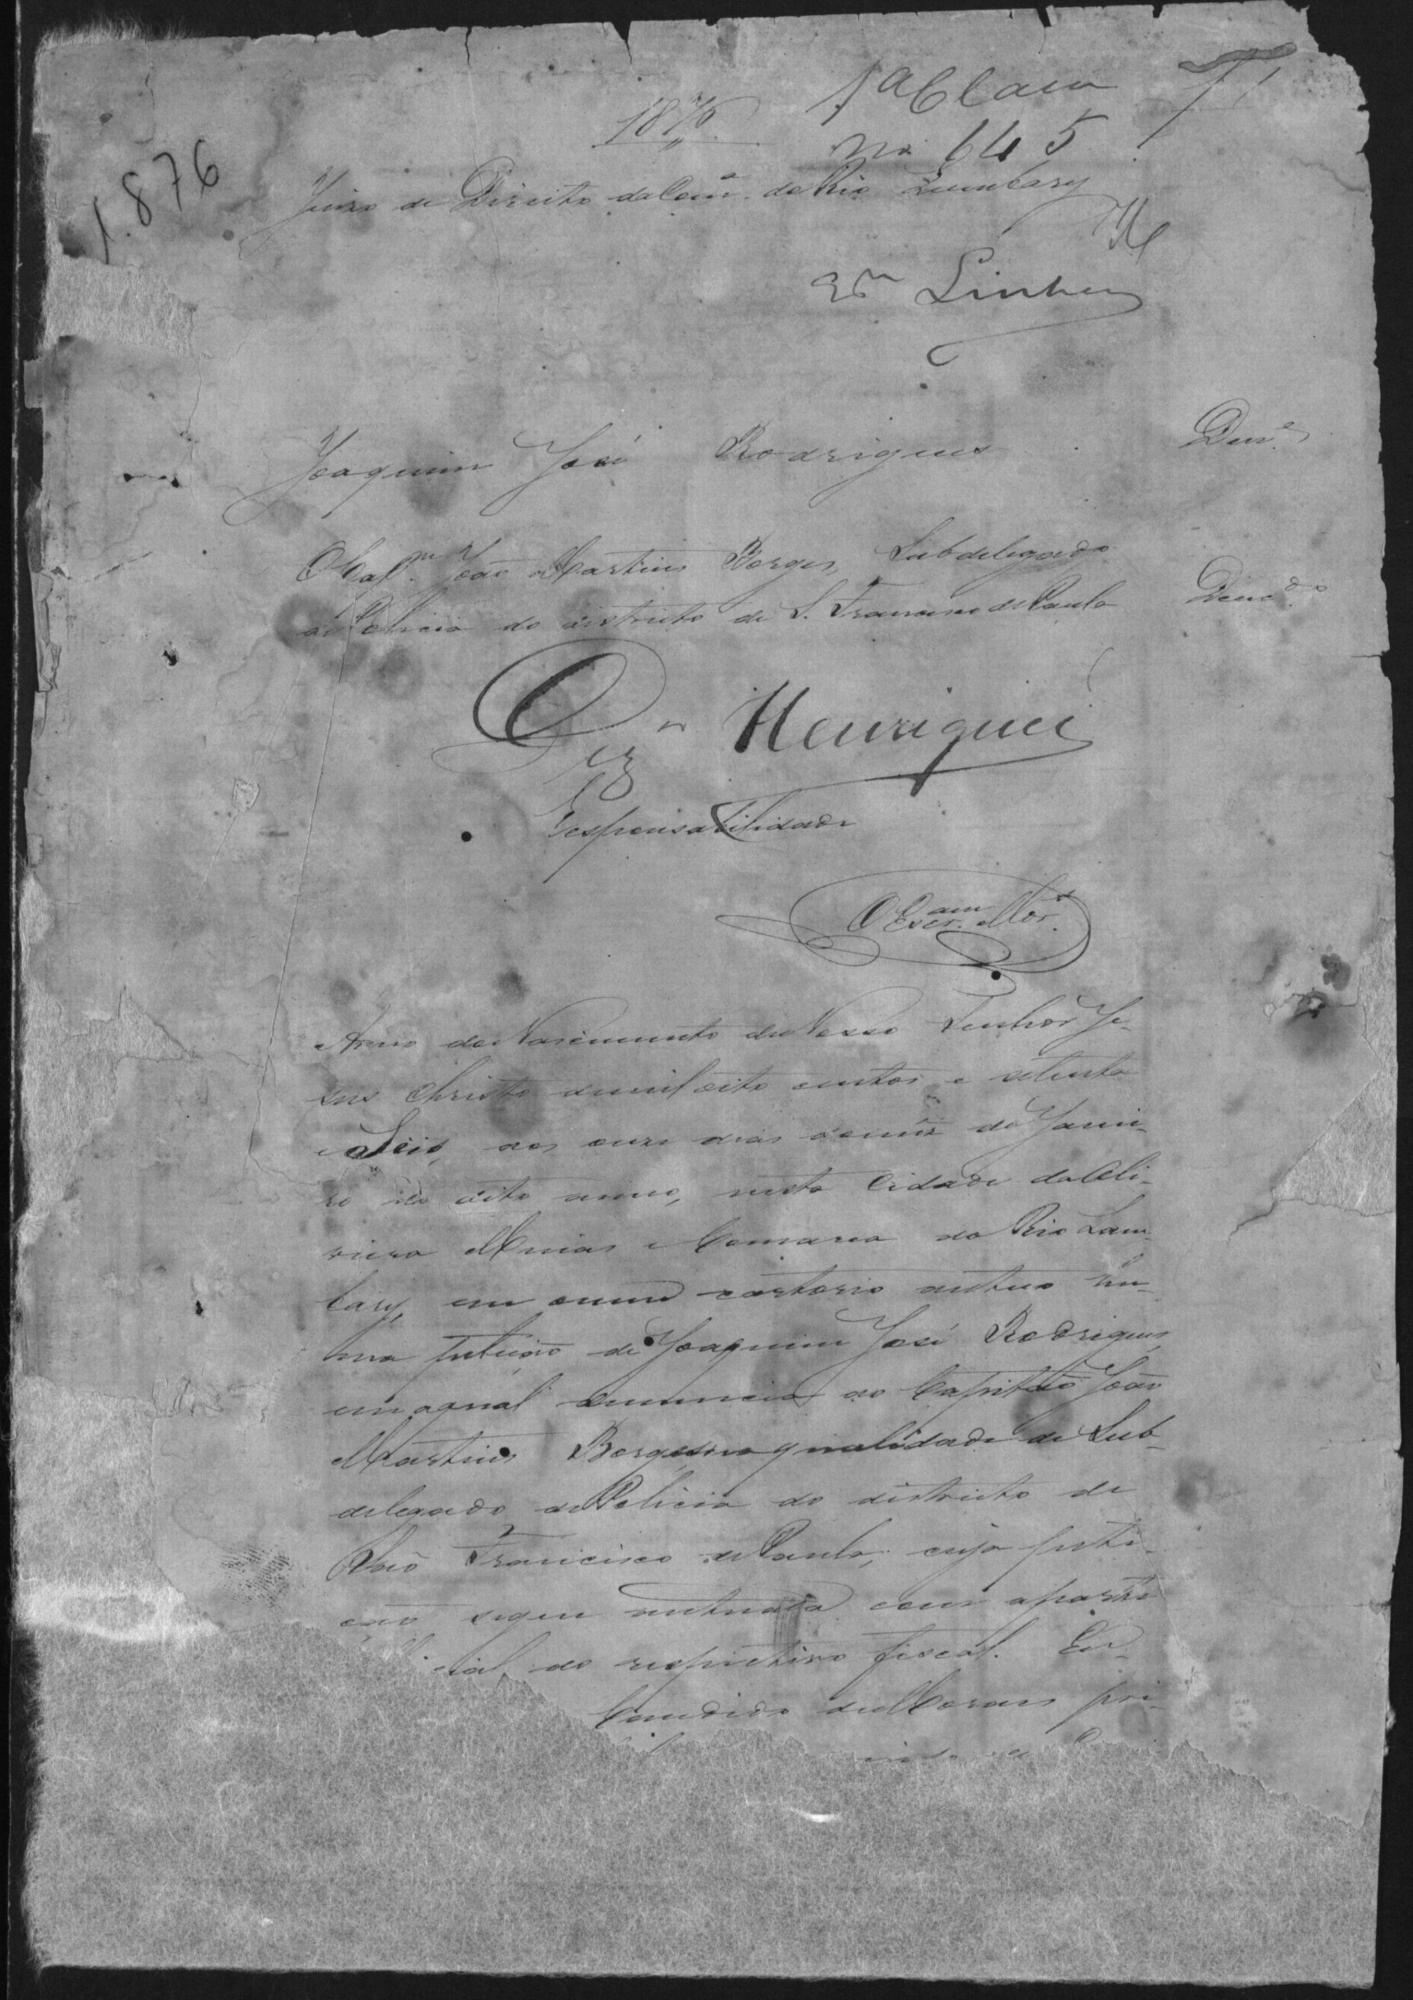 1ª Classe
1876
Nº 645
1.876
Juizo de Direito da Com.ª do Rio Lambary
Joaquim José Rodrigues Den.e
O Cap.m João Martins Borges, Subdelegado
de Policia do districto de S. Francisco de Paula Denc.do
Henriques
Responsabilidade
O Escr.am Mor.s
Anno do Nascimento de Nosso Senhor Je-
sus Christo de mil oito centos e setenta
e Seis, aos onze dias do mez de Janei-
ro do dito anno, nesta Cidade da Oli-
veira Minas e Comarca do Rio Lam-
bary, em meu cartorio autuo hu-
ma petição de Joaquim José Rodrigues,
em a qual denuncia ao Capitão João
Martins Borges na qualidade de Sub-
delegado de Policia do districto de
São Francisco de Paula, cuja peti-
ção segue autuada com a parte
official do respectivo fiscal. Eu
Candido de Moraes